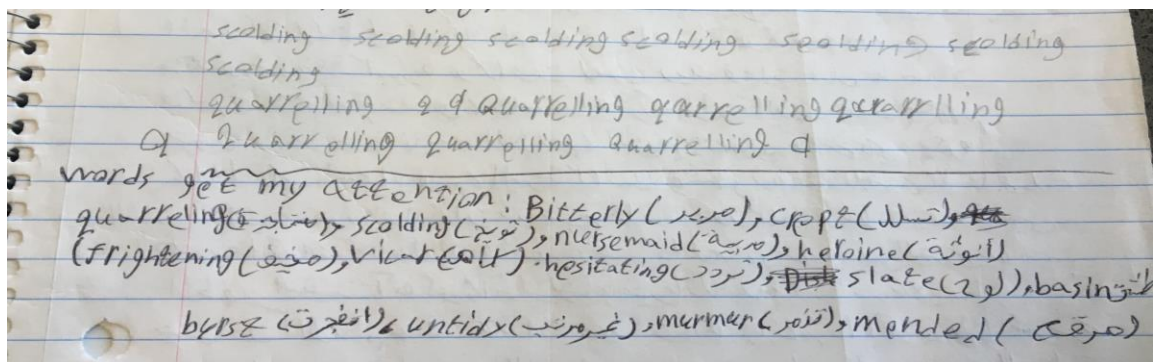 scolding scolding scolding scolding scolding scolding
scolding
quarrelling q q Quarrelling quarrelling qurarrlling
Q quarrelling quarrelling Quarrelling q
words get my attention: Bitterly (مرير), crept (تسلل),
quarreling ( ), scolding (توبيخ), nursemaid (مربية), heroine (انوثة)
(frightening (مخيف), vicar ( ). hesitating (تردد), slate (لوح), basin
burst (انفجرت), untidy (غير مرتب), murmur (تذمر), mended (مرقع)